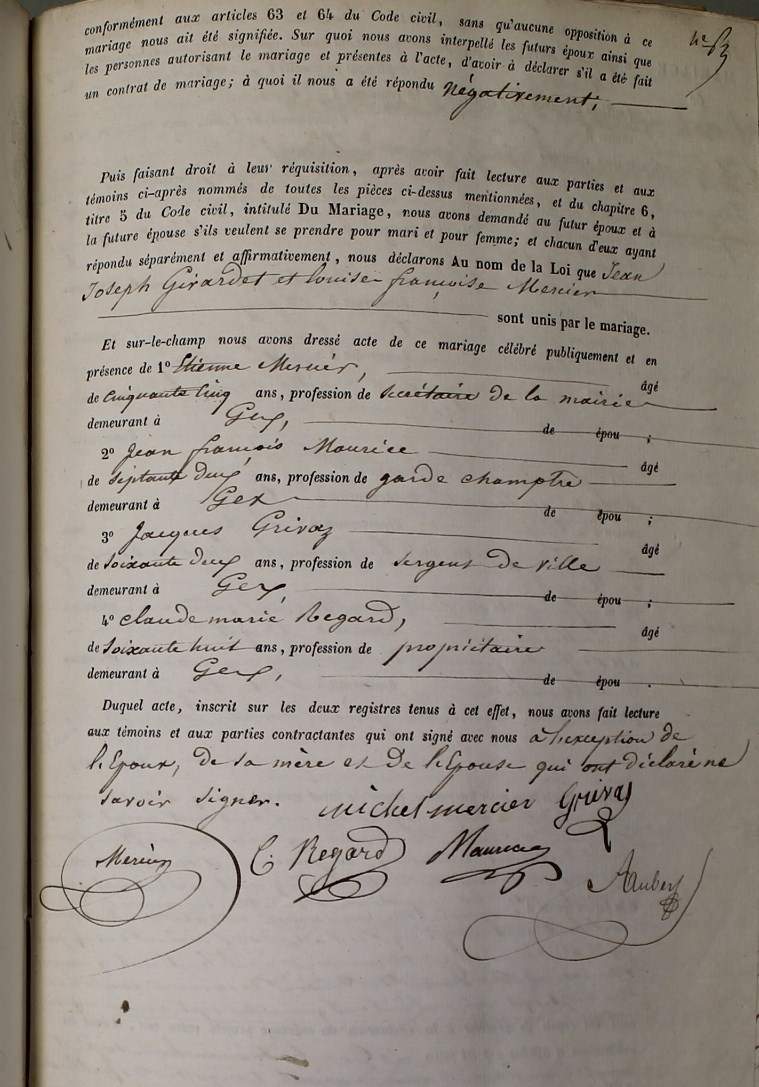 conformément aux articles 63 et 64 du Code civil, sans qu'aucune opposition à ce
mariage nous ait été signifiée. Sur quoi nous avons interpellé les futurs époux ainsi que
les personnes autorisant le mariage et présentes à l'acte, d'avoir à déclarer s'il a été fait
un contrat de mariage; à quoi il nous a été répondu négativement,
Puis faisant droit à leur réquisition, après avoir fait lecture aux parties et aux
témoins ci-après nommés de toutes les pièces ci-dessus mentionnées, et du chapitre 6,
titre 5 du Code civil, intitulé Du Mariage, nous avons demandé au futur époux et à
la future épouse s'ils veulent se prendre pour mari et pour femme; et chacun d'eux ayant
répondu séparément et affirmativement, nous déclarons Au nom de la Loi que Jean
Joseph Girardet et Louise françoise Mercier
sont unis par le mariage.
Et sur-le-champ nous avons dressé acte de ce mariage célébré publiquement et en
présence de 1° Etienne Mercier, âgé
de cinquante cinq ans, profession de secrétaire de la mairie
demeurant à Gex, de épou ;
2° Jean françois Maurice âgé
de septante deux ans, profession de garde champtre
demeurant à Gex de épou ;
3° Jacques Grivaz âgé
de soixante deux ans, profession de sergent de ville
demeurant à Gex, de épou ;
4° claude marie Regard, âgé
de soixante huit ans, profession de propriétaire
demeurant à Gex, de épou .
Duquel acte, inscrit sur les deux registres tenus à cet effet, nous avons fait lecture
aux témoins et aux parties contractantes qui ont signé avec nous à l'exception de
l'Epoux, de sa mère et de l'Epouse qui ont déclaré ne
savoir signer. Michel mercier Grivaz
Mercier C. Regard Maurice